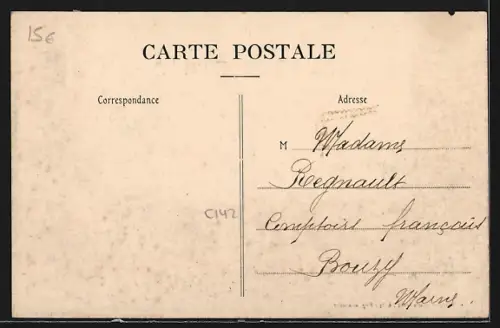 15€
CARTE POSTALE
Correspondance
Adresse
M Madame
Regnault
C142
Comptoirs français
Bouzy
Marne